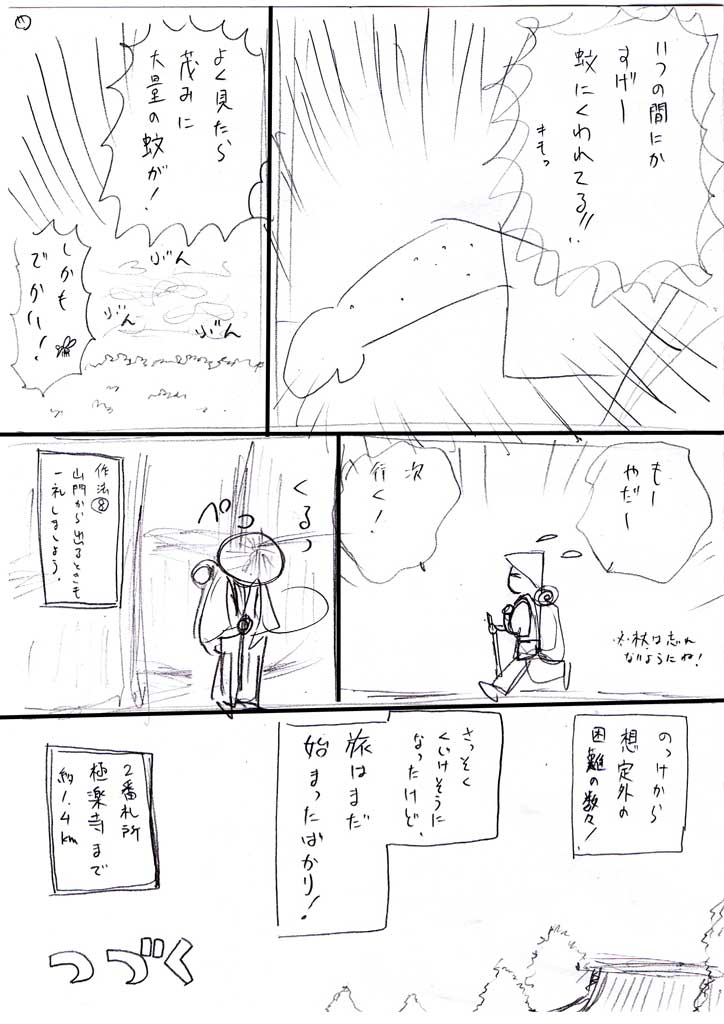 いつの間にか
すげー
蚊にくわれてる!!
キモっ
よく見たら
茂みに
大量の蚊が!
ぶん
ぶん
ぶん
しかも
でかい!
もー
やだー
次
行く!
※杖は忘れ
ないようにね!
くるっ
ペコ
作法⑧
山門から出るときも
一礼しましょう。
のっけから
想定外の
困難の数々!
さっそく
くじけそうに
なったけど、
旅はまだ
始まったばかり!
2番札所
極楽寺まで
約1.4km
つづく